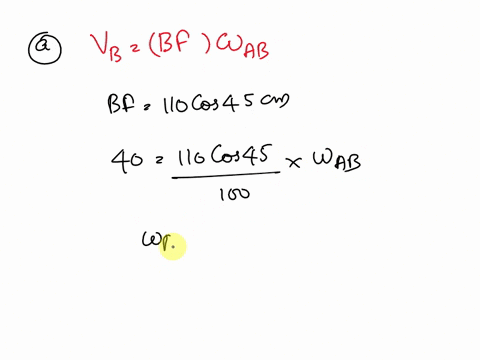 a V_B = (BF) ω_AB
BF = 110 Cos 45 cm
40 = 110 Cos 45 / 100 × ω_AB
ω